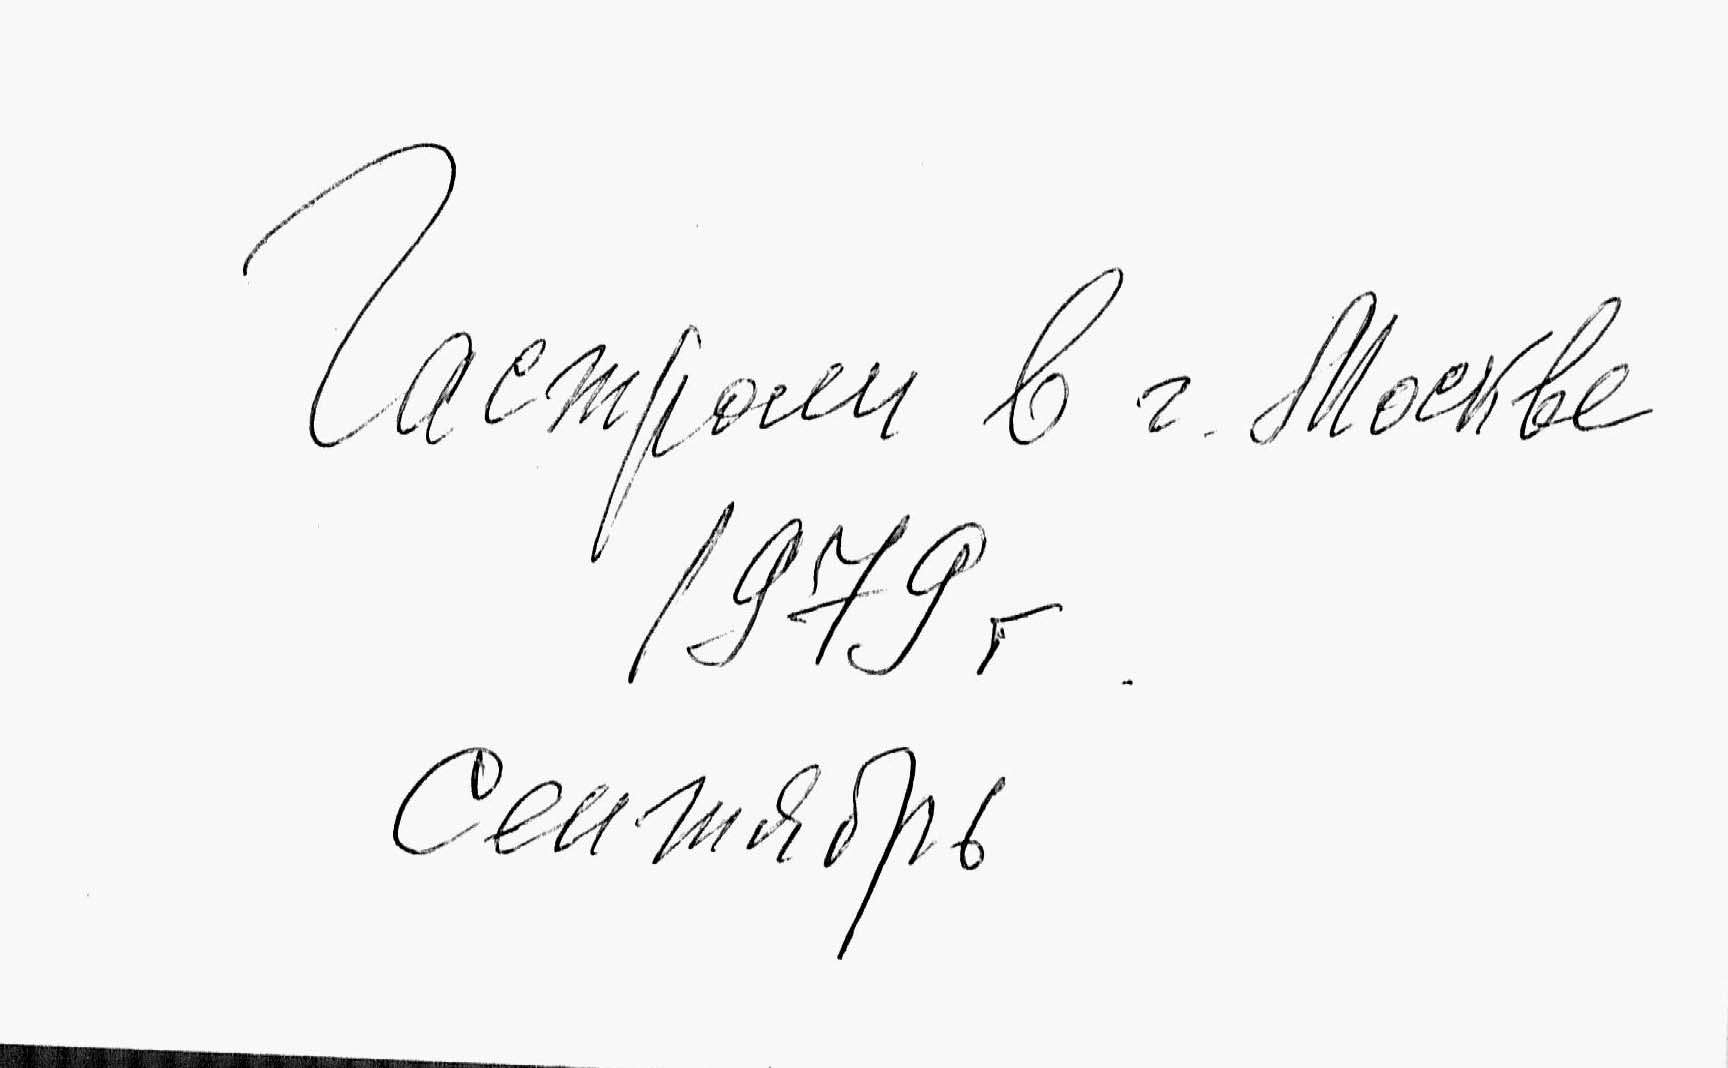 Гастроли в г. Москве
1979 г.
Сентябрь